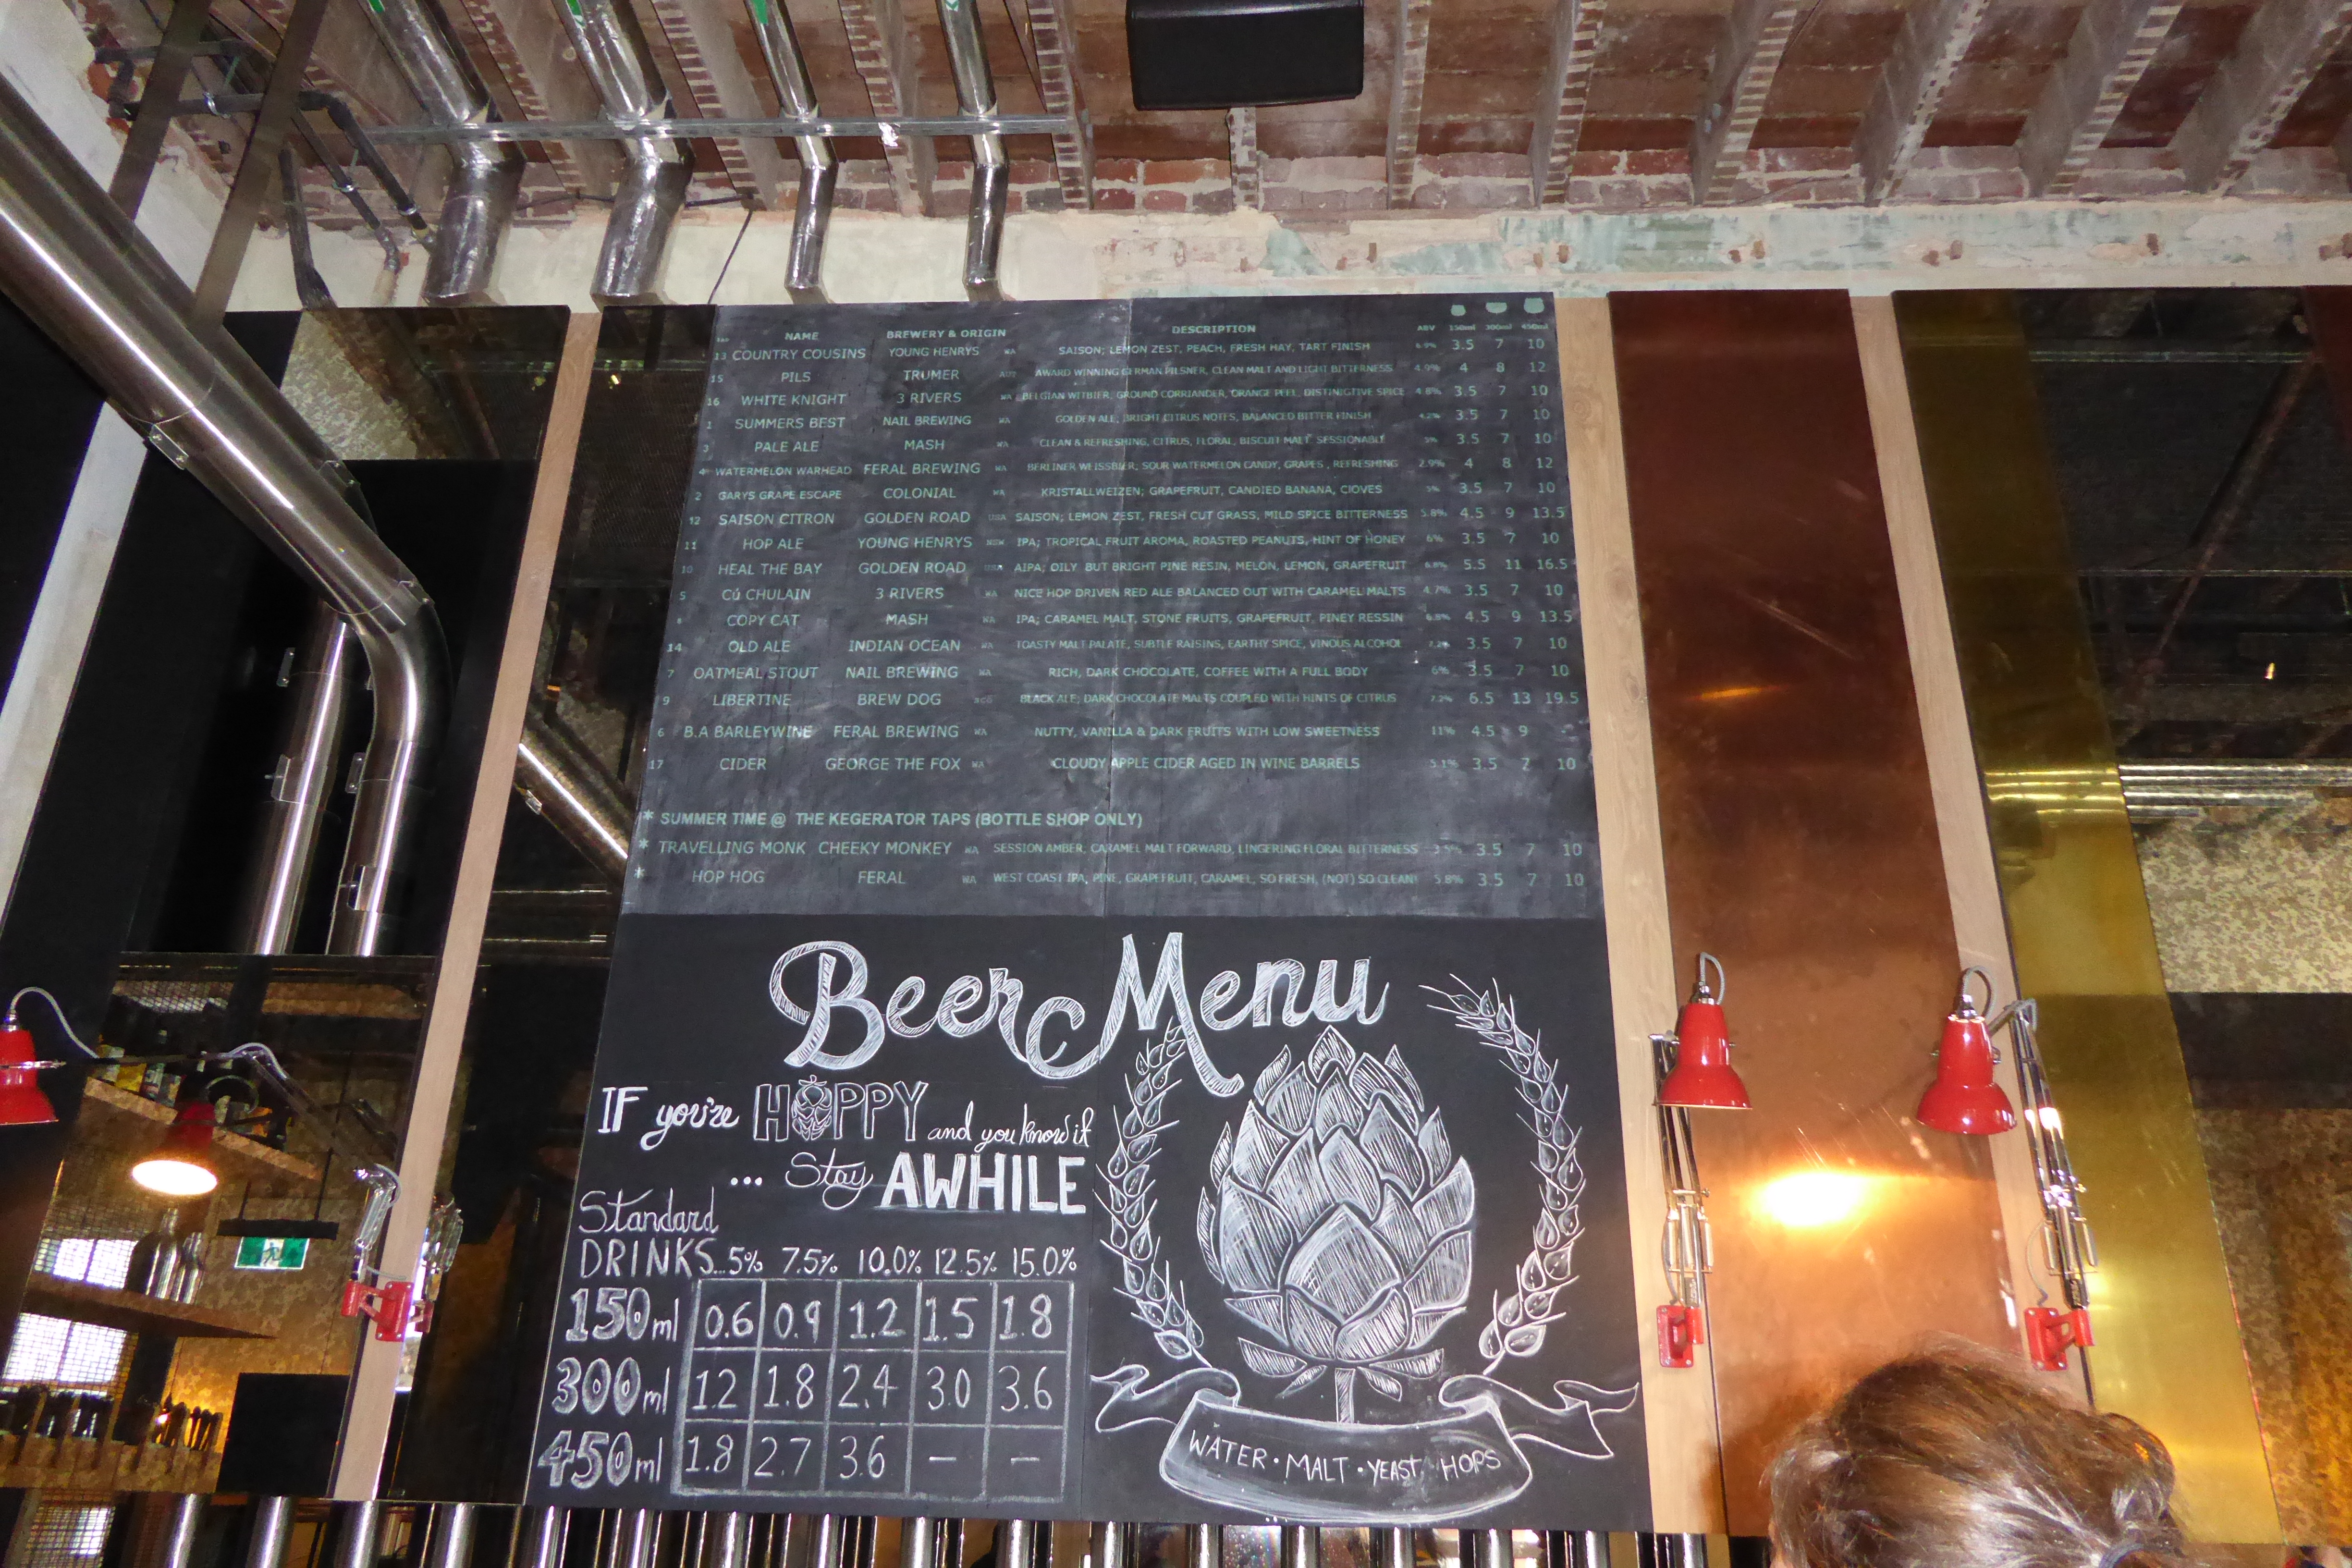 NAME BREWERY & ORIGIN DESCRIPTION ABV 150ml 300ml 450ml
13 COUNTRY COUSINS YOUNG HENRYS WA SAISON; LEMON ZEST, PEACH, FRESH HAY, TART FINISH 3.5 7 10
15 PILS TRUMER AWARD WINNING GERMAN PILSNER, CLEAN MALT AND LIGHT BITTERNESS 4.9% 4 8 12
16 WHITE KNIGHT 3 RIVERS WA BELGIAN WITBIER, GROUND CORRIANDER, ORANGE PEEL, DISTINIGTIVE SPICE 4.8% 3.5 7 10
1 SUMMERS BEST NAIL BREWING WA GOLDEN ALE, BRIGHT CITRUS NOTES, BALANCED BITTER FINISH 4.2% 3.5 7 10
3 PALE ALE MASH WA CLEAN & REFRESHING, CITRUS, FLORAL, BISCUIT MALT SESSIONABLE 5% 3.5 7 10
4 WATERMELON WARHEAD FERAL BREWING WA BERLINER WEISSBIER, SOUR WATERMELON CANDY, GRAPES , REFRESHING 2.9% 4 8 12
2 GARYS GRAPE ESCAPE COLONIAL WA KRISTALLWEIZEN; GRAPEFRUIT, CANDIED BANANA, ClOVES 5% 3.5 7 10
12 SAISON CITRON GOLDEN ROAD USA SAISON; LEMON ZEST, FRESH CUT GRASS, MILD SPICE BITTERNESS 5.8% 4.5 9 13.5
11 HOP ALE YOUNG HENRYS NSW IPA; TROPICAL FRUIT AROMA, ROASTED PEANUTS, HINT OF HONEY 6% 3.5 7 10
10 HEAL THE BAY GOLDEN ROAD USA AIPA; OILY BUT BRIGHT PINE RESIN, MELON, LEMON, GRAPEFRUIT 6.8% 5.5 11 16.5
5 Cú CHULAIN 3 RIVERS WA NICE HOP DRIVEN RED ALE BALANCED OUT WITH CARAMEL MALTS 4.7% 3.5 7 10
COPY CAT MASH WA IPA; CARAMEL MALT, STONE FRUITS, GRAPEFRUIT, PINEY RESSIN 6.8% 4.5 9 13.5
14 OLD ALE INDIAN OCEAN WA TOASTY MALT PALATE, SUBTLE RAISINS, EARTHY SPICE, VINOUS ALCOHOL 3.5 7 10
7 OATMEAL STOUT NAIL BREWING WA RICH, DARK CHOCOLATE, COFFEE WITH A FULL BODY 6% 3.5 7 10
9 LIBERTINE BREW DOG SCO BLACK ALE; DARK CHOCOLATE MALTS COUPLED WITH HINTS OF CITRUS 7.2% 6.5 13 19.5
6 B.A BARLEYWINE FERAL BREWING WA NUTTY, VANILLA & DARK FRUITS WITH LOW SWEETNESS 11% 4.5 9 -
17 CIDER GEORGE THE FOX WA CLOUDY APPLE CIDER AGED IN WINE BARRELS 5.1% 3.5 7 10
* SUMMER TIME @ THE KEGERATOR TAPS (BOTTLE SHOP ONLY)
* TRAVELLING MONK CHEEKY MONKEY WA SESSION AMBER, CARAMEL MALT FORWARD, LINGERING FLORAL BITTERNESS 3.5% 3.5 7 10
* HOP HOG FERAL WA WEST COAST IPA, PINE, GRAPEFRUIT, CARAMEL, SO FRESH, (NOT) SO CLEAN! 5.8% 3.5 7 10
Beer Menu
IF you're HOPPY and you know it
... Stay AWHILE
Standard
DRINKS...5% 7.5% 10.0% 12.5% 15.0%
150ml 0.6 0.9 1.2 1.5 1.8
300ml 1.2 1.8 2.4 3.0 3.6
450ml 1.8 2.7 3.6 — —
WATER • MALT • YEAST HOPS